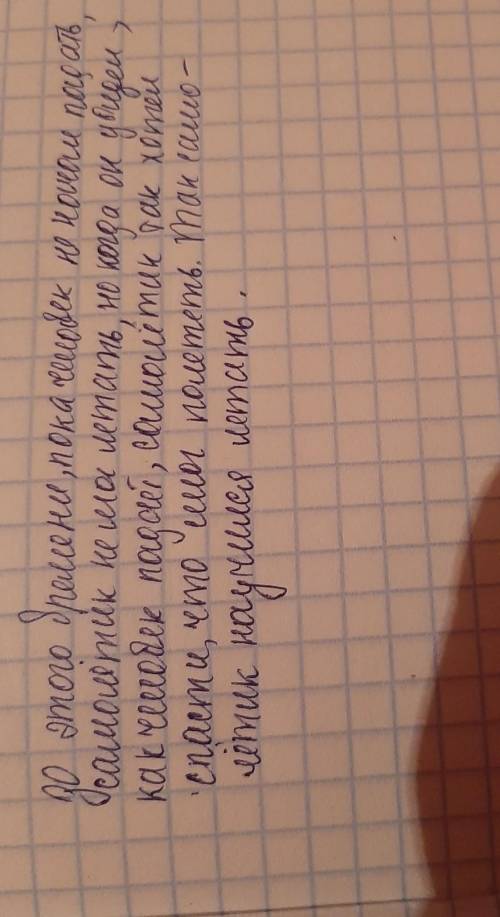 До этого времени, пока человек не начал падать,
самолётик не мог летать, но когда он увидел,
как человек падает, самолётик так хотел
спасти, что смог полететь. Так само-
лётик научился летать.